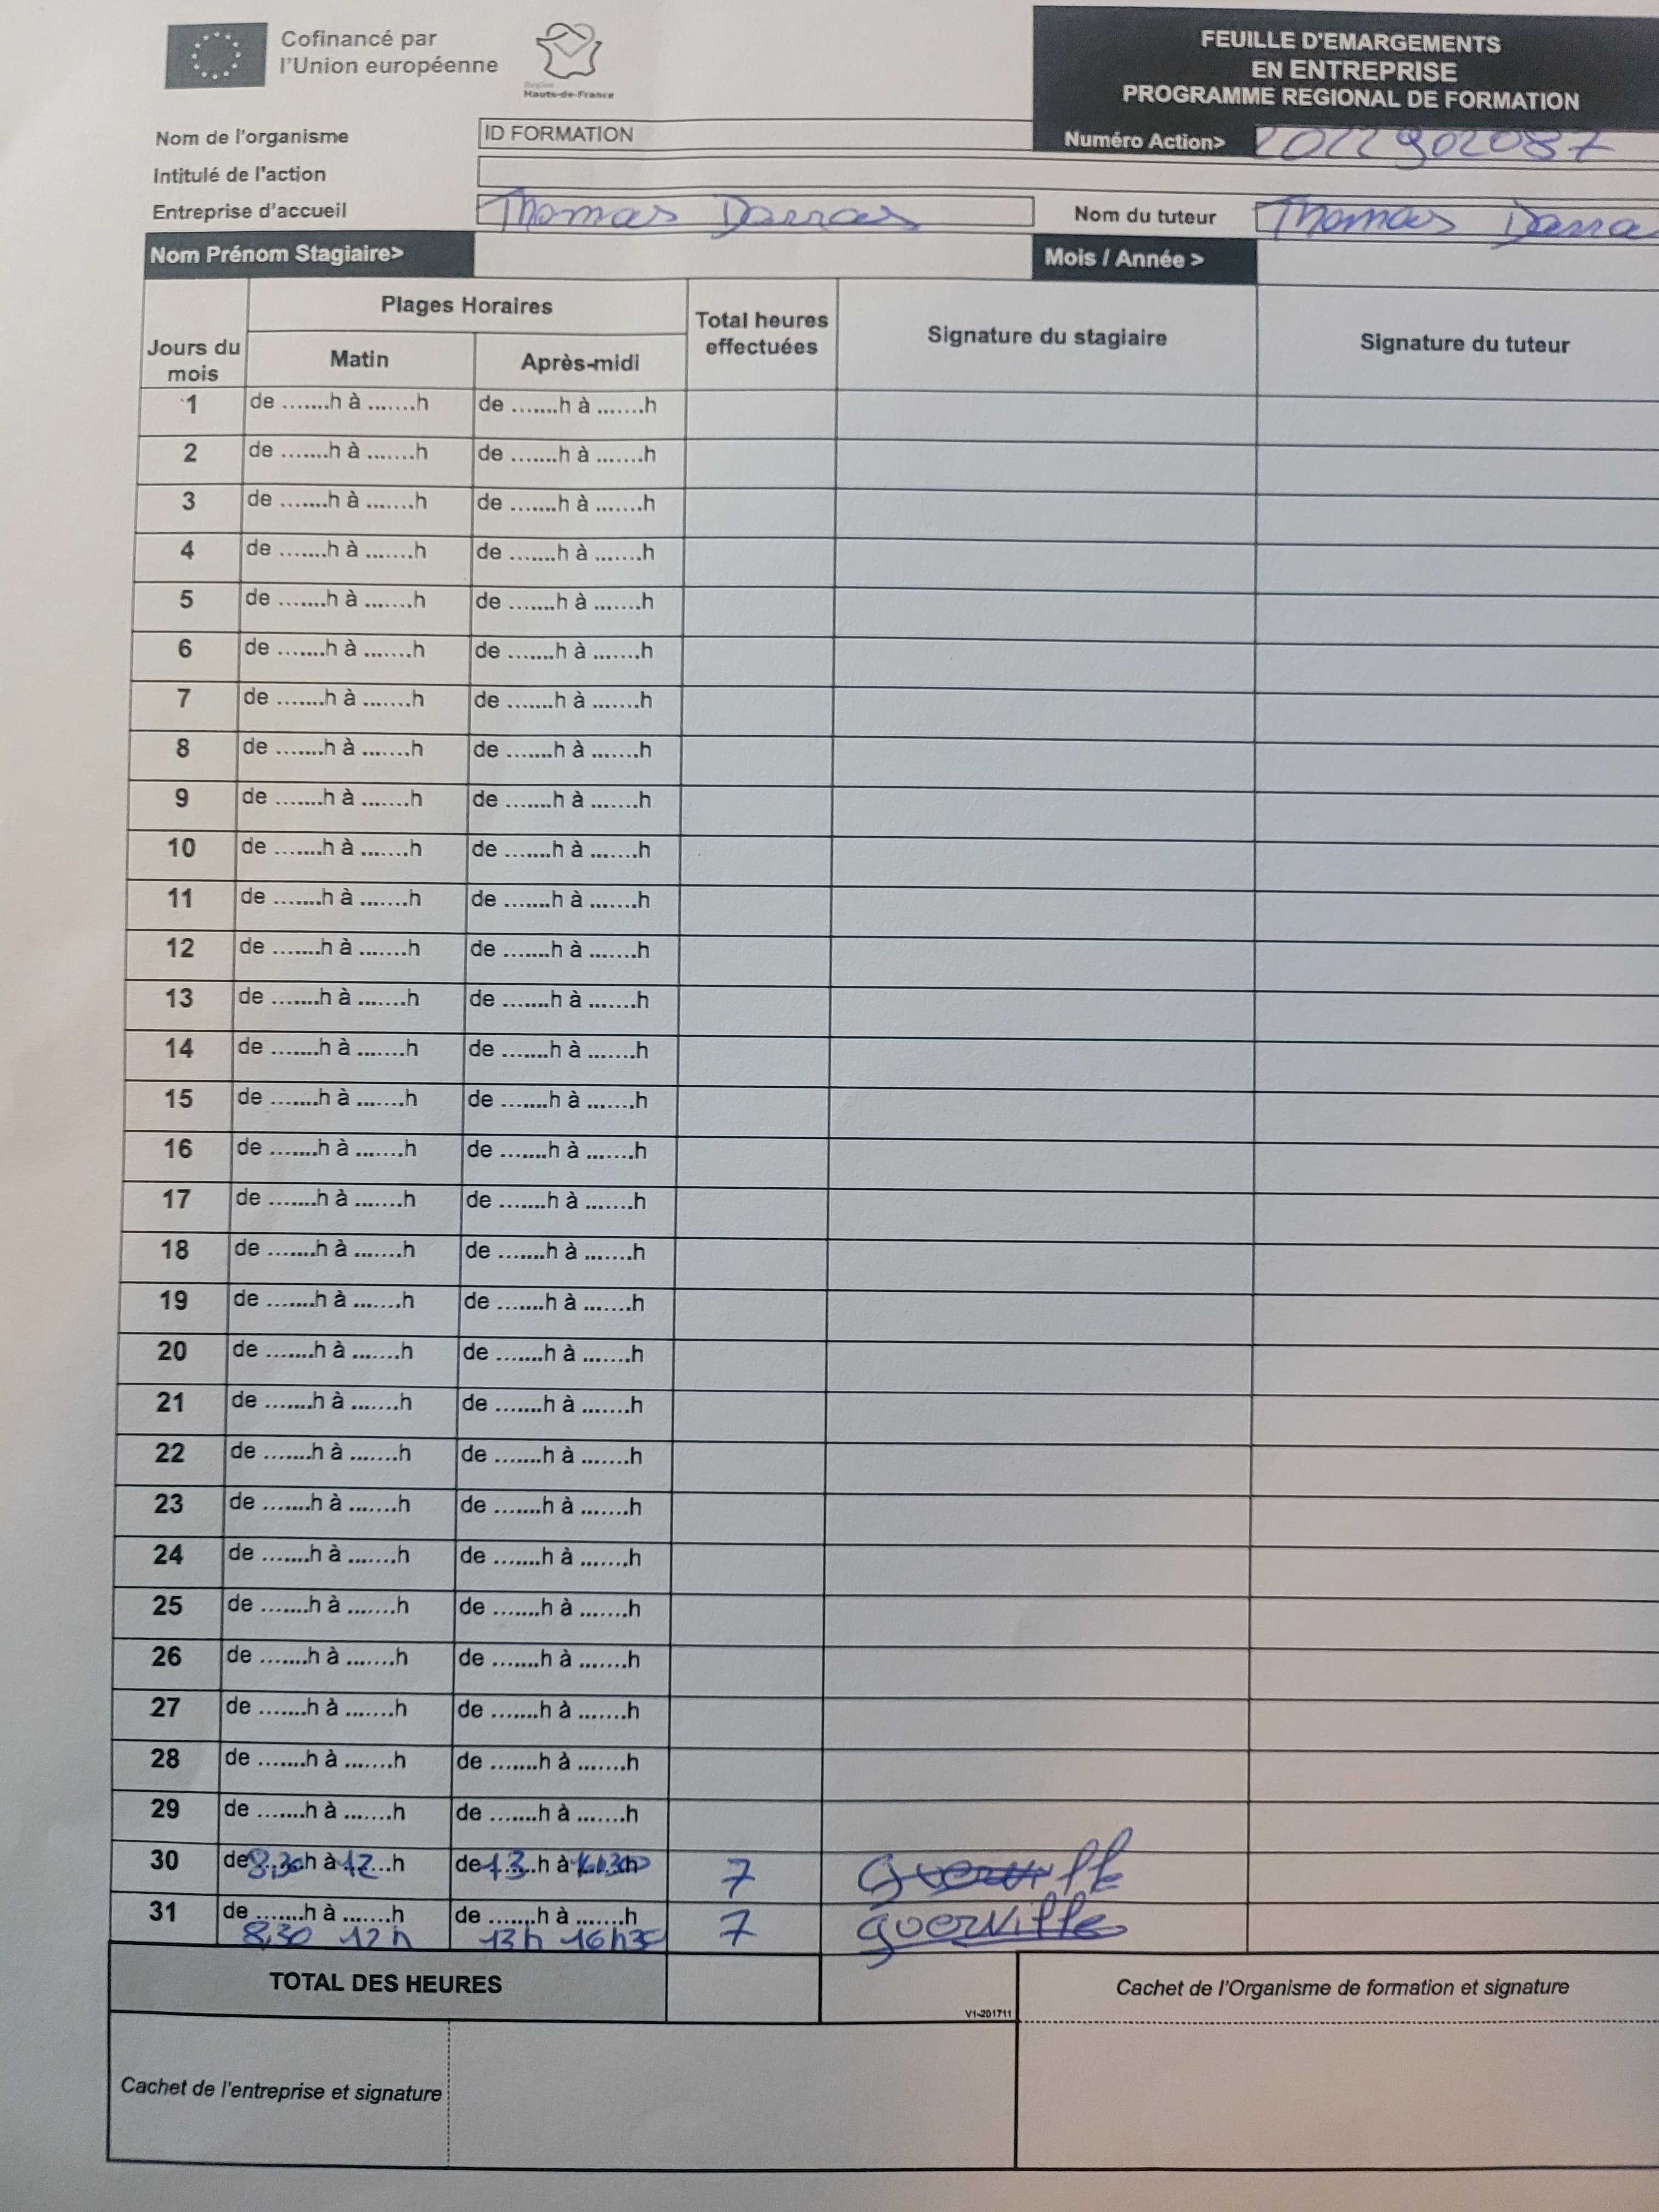 Cofinancé par
l'Union européenne
Région
Hauts-de-France
FEUILLE D'EMARGEMENTS
EN ENTREPRISE
PROGRAMME REGIONAL DE FORMATION
Nom de l'organisme ID FORMATION Numéro Action> 2022902087
Intitulé de l'action
Entreprise d'accueil Thomas Darras Nom du tuteur Thomas Darra
Nom Prénom Stagiaire> Mois / Année >
Jours du mois Plages Horaires Total heures effectuées Signature du stagiaire Signature du tuteur
Matin Après-midi
1 de .......h à .......h de .......h à .......h
2 de .......h à .......h de .......h à .......h
3 de .......h à .......h de .......h à .......h
4 de .......h à .......h de .......h à .......h
5 de .......h à .......h de .......h à .......h
6 de .......h à .......h de .......h à .......h
7 de .......h à .......h de .......h à .......h
8 de .......h à .......h de .......h à .......h
9 de .......h à .......h de .......h à .......h
10 de .......h à .......h de .......h à .......h
11 de .......h à .......h de .......h à .......h
12 de .......h à .......h de .......h à .......h
13 de .......h à .......h de .......h à .......h
14 de .......h à .......h de .......h à .......h
15 de .......h à .......h de .......h à .......h
16 de .......h à .......h de .......h à .......h
17 de .......h à .......h de .......h à .......h
18 de .......h à .......h de .......h à .......h
19 de .......h à .......h de .......h à .......h
20 de .......h à .......h de .......h à .......h
21 de .......h à .......h de .......h à .......h
22 de .......h à .......h de .......h à .......h
23 de .......h à .......h de .......h à .......h
24 de .......h à .......h de .......h à .......h
25 de .......h à .......h de .......h à .......h
26 de .......h à .......h de .......h à .......h
27 de .......h à .......h de .......h à .......h
28 de .......h à .......h de .......h à .......h
29 de .......h à .......h de .......h à .......h
30 de 8,30h à 12h de 13h à 16h30 7
31 de .......h à .......h de .......h à .......h 7 guerville
8,30 12h 13h 16h30
TOTAL DES HEURES
V1-201711
Cachet de l'Organisme de formation et signature
Cachet de l'entreprise et signature